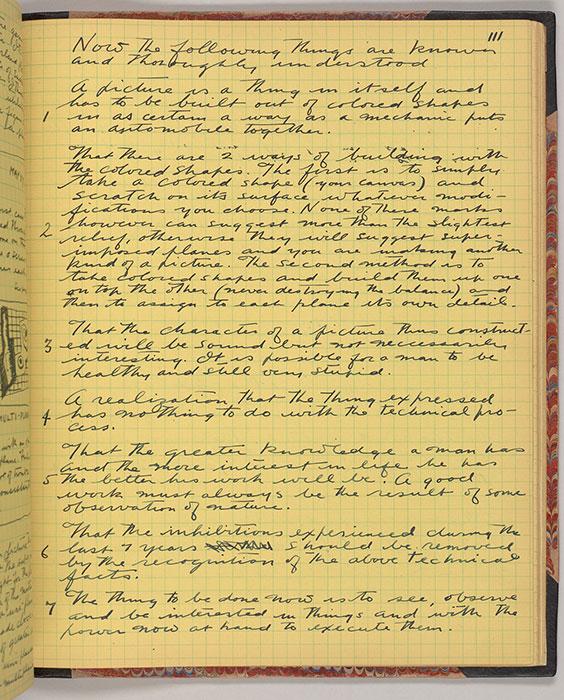 111
Now the following things are known
and thoroughly understood
A picture is a thing in itself and
has to be built out of colored shapes
1 in as certain a way as a mechanic puts
an automobile together.
That there are 2 ways of building with
the colored shapes. The first is to simply
take a colored shape (your canvas) and
scratch on its surface whatever modi-
fications you choose. None of these marks
2 however can suggest more than the slightest
relief, otherwise they will suggest super-
imposed planes and you are making another
kind of a picture. The second method is to
take colored shapes and build them up one
on top the other (never destroying the balance) and
then to assign to each plane its own detail.
That the character of a picture thus construct-
3 ed will be sound but not neccessarily
interesting. It is possible for a man to be
healthy and still very stupid.
A realization that the thing expressed
4 has nothing to do with the technical pro-
cess.
That the greater knowledge a man has
and the more interest in life he has
5 the better his work will be. A good
work must always be the result of some
observation of nature.
That the inhibitions experienced during the
6 last 7 years should be removed
by the recognition of the above technical
facts.
7 The thing to be done now is to see, observe
and be interested in things and with the
power now at hand to execute them.